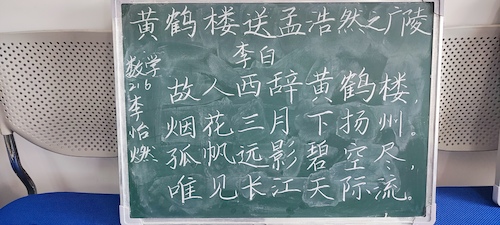 黄鹤楼送孟浩然之广陵
李白
故人西辞黄鹤楼，
烟花三月下扬州。
孤帆远影碧空尽，
唯见长江天际流。
数学
216
李
怡
燃